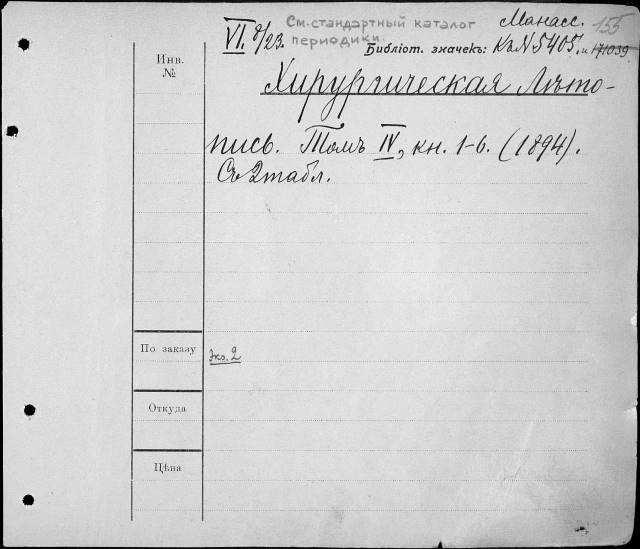 См. стандартный каталог Манасс. 155
VI. 8/23. периодики.
Библіот. значекъ: Къ N 5405. и 171039
Инв.
№
Хирургическая Лѣто-
пись. Томъ IV, кн. 1-6. (1894).
Съ 2 табл.
По заказу
Экз. 2
Откуда
Цѣна